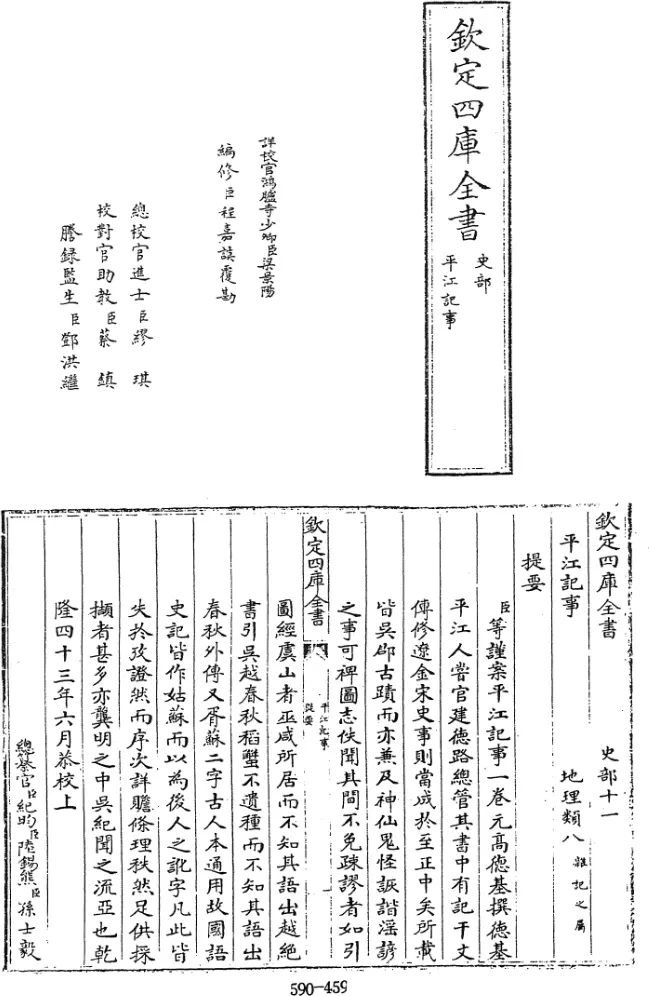 欽定四庫全書
史部
平江記事
詳校官鴻臚寺少卿臣梁景陽
編修臣程嘉謨覆勘
總校官進士臣繆琪
校對官助教臣蔡鎮
謄錄監生臣鄧洪繼
欽定四庫全書 史部十一
平江記事 地理類八雜記之屬
提要
臣等謹案平江記事一卷元高德基撰德基
平江人嘗官建德路總管其書中有記干文
傳修遼金宋史事則當成於至正中矣所載
皆吳郡古蹟而亦兼及神仙鬼怪詼諧淫諺
之事可裨圖志佚聞其間不免疎謬者如引
欽定四庫全書
平江記事
提要
圖經虞山者巫咸所居而不知其語出越絕
書引吳越春秋稻蟹不遺種而不知其語出
春秋外傳又胥蘇二字古人本通用故國語
史記皆作姑蘇而以為後人之訛字凡此皆
失於攷證然而序次詳贍條理秩然足供採
擷者甚多亦龔明之中吳紀聞之流亞也乾
隆四十三年六月恭校上
總纂官臣紀昀臣陸錫熊臣孫士毅
590-459